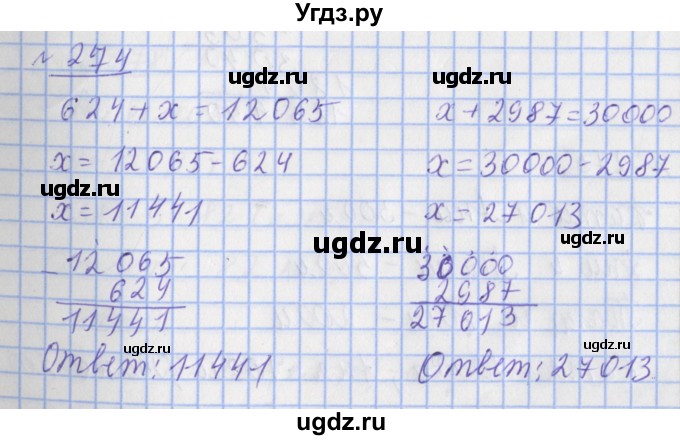 Угдз.ру
№ 274
ugdz.ru ugdz.ru
624+x=12065 x+2987=30000
x=12065-624 x=30000-2987
ugdz.ru ugdz.ru
x=11441 x=27013
ugdz.ru ugdz.ru
-12065 30000
624 2987
11441 27013
ugdz.ru ugdz.ru
Ответ: 11441 Ответ: 27013
ugdz.ru